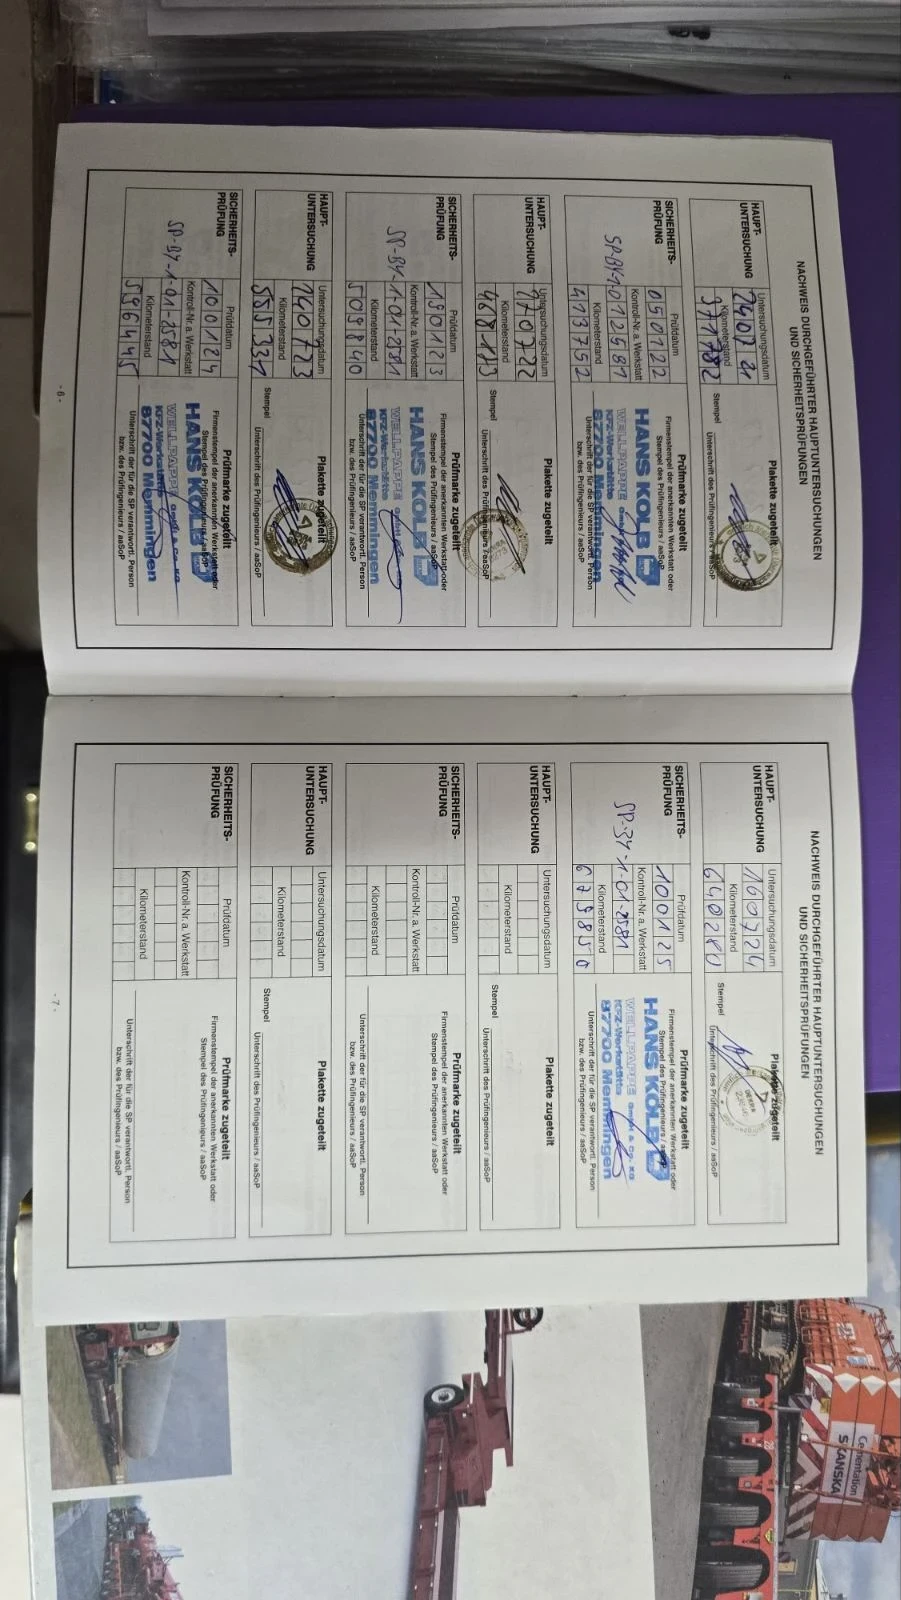 NACHWEIS DURCHGEFÜHRTER HAUPTUNTERSUCHUNGEN
UND SICHERHEITSPRÜFUNGEN
HAUPT-
UNTERSUCHUNG
Untersuchungsdatum
Kilometerstand
Plakette zugeteilt
Stempel
Unterschrift des Prüfingenieurs / aaSoP
SICHERHEITS-
PRÜFUNG
Prüfdatum
050122
Kontroll-Nr. a. Werkstatt
SP-BY-1-012581
Kilometerstand
413752
Prüfmarke zugeteilt
Firmenstempel der anerkannten Werkstatt oder
Stempel des Prüfingenieurs / aaSoP
HANS KOLB
WELLPAPPE GmbH & Co. KG
KFZ-Werkstätte
87700 Memmingen
Unterschrift der für die SP verantwortl. Person
bzw. des Prüfingenieurs / aaSoP
HAUPT-
UNTERSUCHUNG
Untersuchungsdatum
270722
Kilometerstand
468113
Plakette zugeteilt
Stempel
Unterschrift des Prüfingenieurs / aaSoP
SICHERHEITS-
PRÜFUNG
Prüfdatum
190123
Kontroll-Nr. a. Werkstatt
SP-BY-1-01-2581
Kilometerstand
509840
Prüfmarke zugeteilt
Firmenstempel der anerkannten Werkstatt oder
Stempel des Prüfingenieurs / aaSoP
HANS KOLB
WELLPAPPE GmbH & Co. KG
KFZ-Werkstätte
87700 Memmingen
Unterschrift der für die SP verantwortl. Person
bzw. des Prüfingenieurs / aaSoP
HAUPT-
UNTERSUCHUNG
Untersuchungsdatum
240723
Kilometerstand
555331
Plakette zugeteilt
Stempel
Unterschrift des Prüfingenieurs / aaSoP
SICHERHEITS-
PRÜFUNG
Prüfdatum
100124
Kontroll-Nr. a. Werkstatt
SP-BY-1-01-2581
Kilometerstand
596445
Prüfmarke zugeteilt
Firmenstempel der anerkannten Werkstatt oder
Stempel des Prüfingenieurs / aaSoP
HANS KOLB
WELLPAPPE GmbH & Co. KG
KFZ-Werkstätte
87700 Memmingen
Unterschrift der für die SP verantwortl. Person
bzw. des Prüfingenieurs / aaSoP
- 6 -
NACHWEIS DURCHGEFÜHRTER HAUPTUNTERSUCHUNGEN
UND SICHERHEITSPRÜFUNGEN
HAUPT-
UNTERSUCHUNG
Untersuchungsdatum
160724
Kilometerstand
640280
Plakette zugeteilt
DEKRA
Stempel
Unterschrift des Prüfingenieurs / aaSoP
SICHERHEITS-
PRÜFUNG
Prüfdatum
100125
Kontroll-Nr. a. Werkstatt
SP-BY-1-01-2581
Kilometerstand
679850
Prüfmarke zugeteilt
Firmenstempel der anerkannten Werkstatt oder
Stempel des Prüfingenieurs / aaSoP
HANS KOLB
WELLPAPPE GmbH & Co. KG
KFZ-Werkstätte
87700 Memmingen
Unterschrift der für die SP verantwortl. Person
bzw. des Prüfingenieurs / aaSoP
HAUPT-
UNTERSUCHUNG
Untersuchungsdatum
Kilometerstand
Plakette zugeteilt
Stempel
Unterschrift des Prüfingenieurs / aaSoP
SICHERHEITS-
PRÜFUNG
Prüfdatum
Kontroll-Nr. a. Werkstatt
Kilometerstand
Prüfmarke zugeteilt
Firmenstempel der anerkannten Werkstatt oder
Stempel des Prüfingenieurs / aaSoP
Unterschrift der für die SP verantwortl. Person
bzw. des Prüfingenieurs / aaSoP
HAUPT-
UNTERSUCHUNG
Untersuchungsdatum
Kilometerstand
Plakette zugeteilt
Stempel
Unterschrift des Prüfingenieurs / aaSoP
SICHERHEITS-
PRÜFUNG
Prüfdatum
Kontroll-Nr. a. Werkstatt
Kilometerstand
Prüfmarke zugeteilt
Firmenstempel der anerkannten Werkstatt oder
Stempel des Prüfingenieurs / aaSoP
Unterschrift der für die SP verantwortl. Person
bzw. des Prüfingenieurs / aaSoP
- 7 -
Cementation
SKANSKA